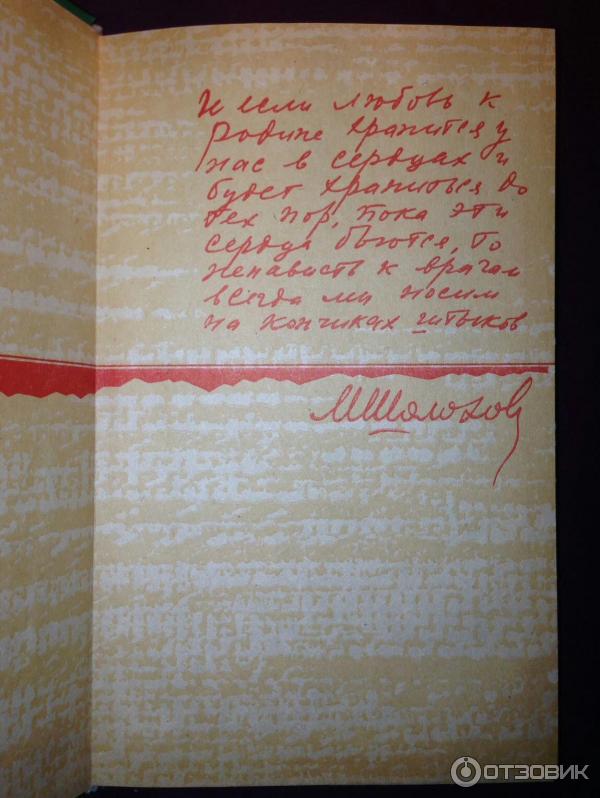 И если любовь к
родине хранится у
нас в сердцах и
будет храниться до
тех пор, пока эти
сердца бьются, то
ненависть к врагам
всегда мы носим
на кончиках штыков
МШолохов
ОТЗОВИК